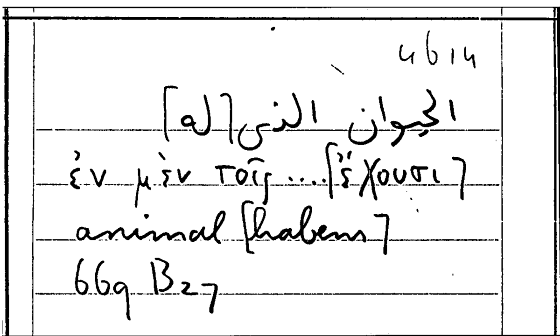 4614
الحيوان الذى [له]
ἐν μὲν τοῖς .... [ἔχουσι]
animal [habens]
669 B27